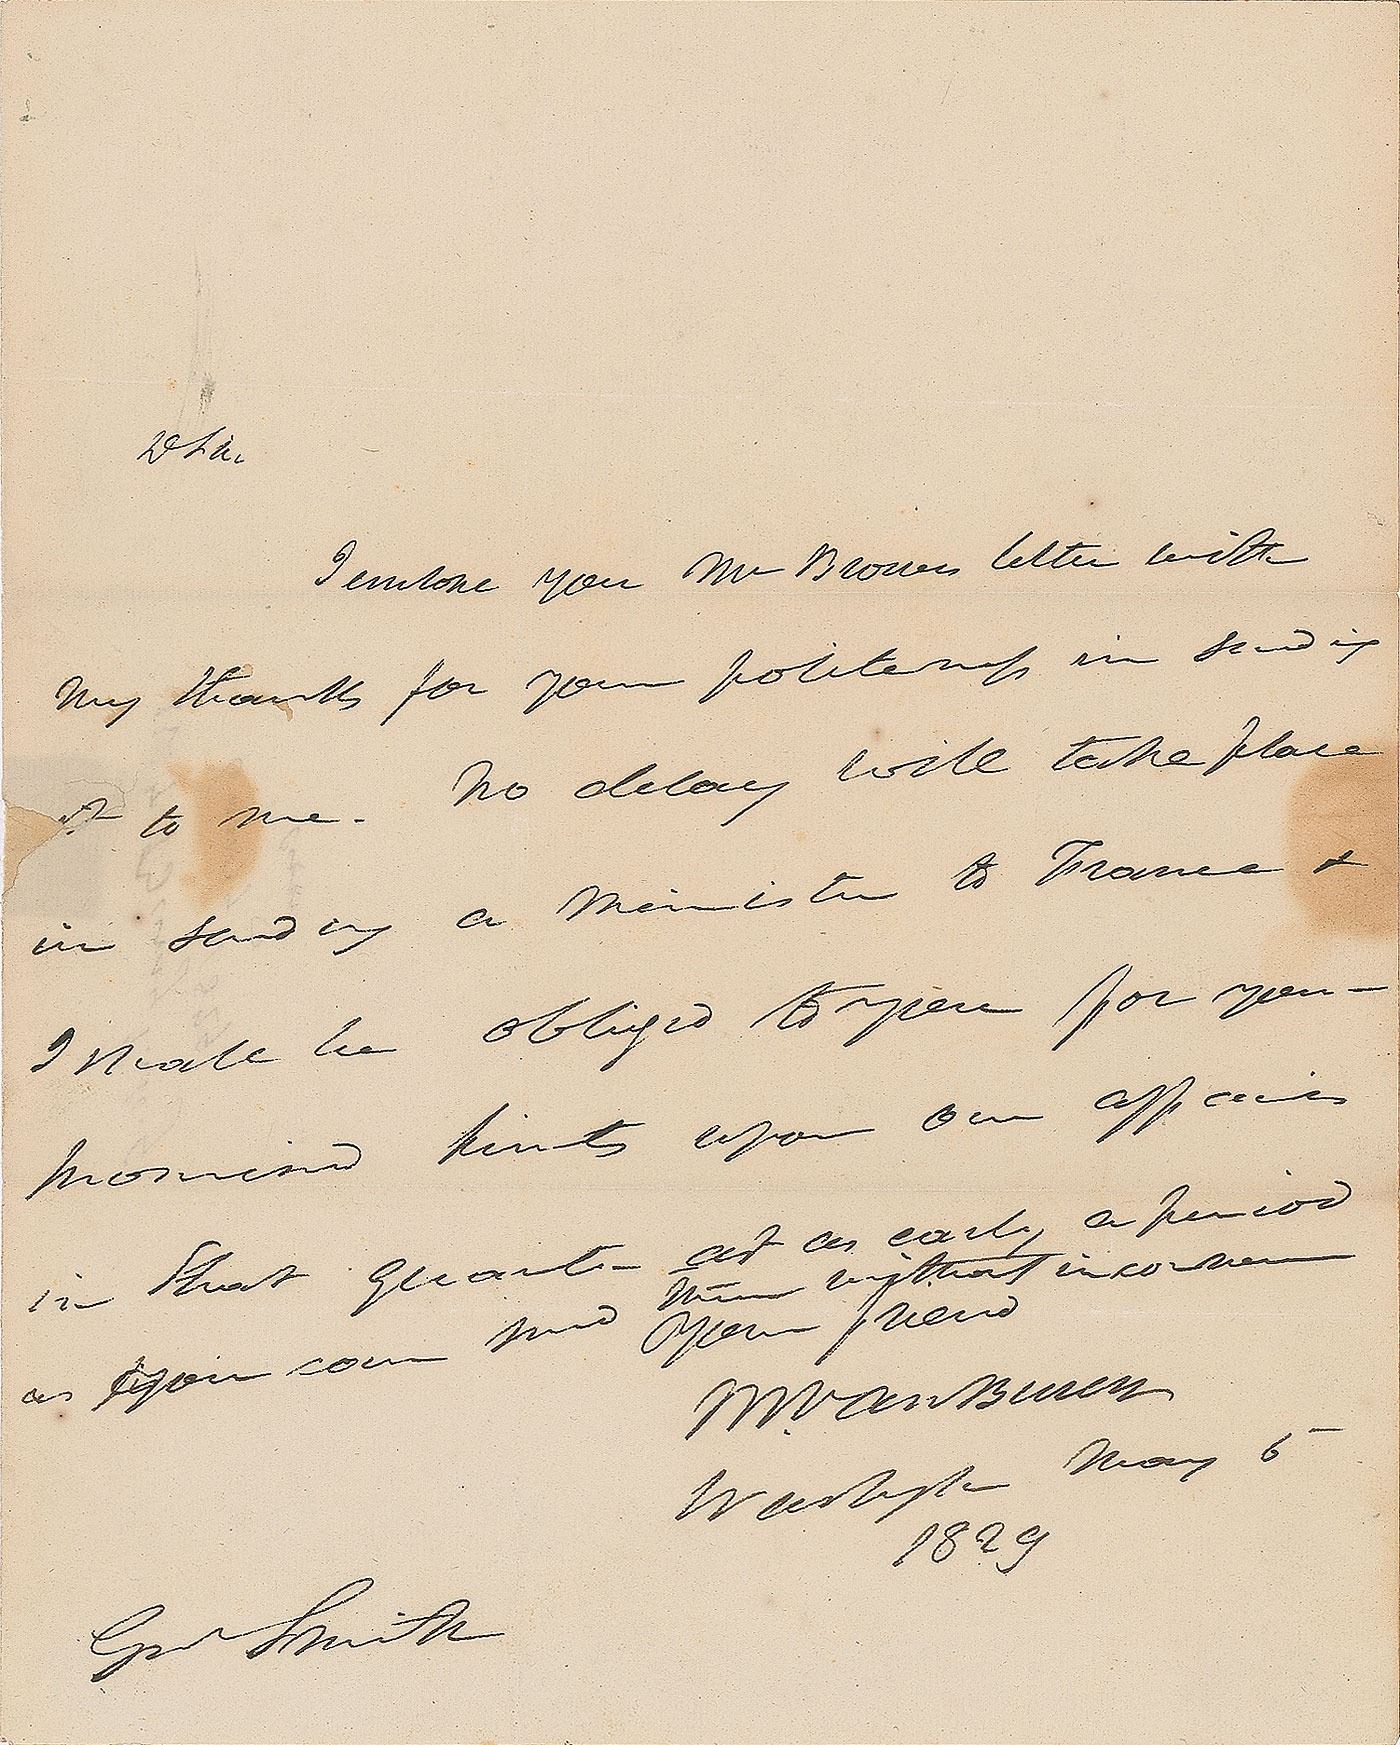 D Sir
I enclose you Mr Browns letter with
my thanks for your politeness in sending
it to me. No delay will take place
in sending a Minister to France &
I shall be obliged to you for your
promised hints upon our affairs
in that quarter at as early a period
as you can send them without inconven
Your friend
M. Van Buren
Washington May 5
1829
Smith